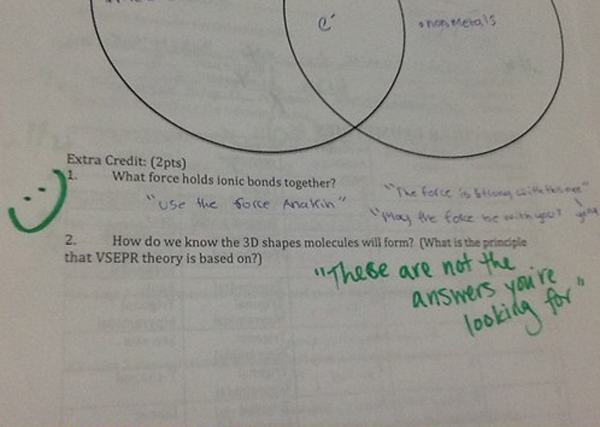 e⁻
• nonmetals
Extra Credit: (2pts)
1. What force holds ionic bonds together?
"The force is strong with this one"
"use the force Anakin"
"May the force be with you"
2. How do we know the 3D shapes molecules will form? (What is the principle
that VSEPR theory is based on?)
"These are not the
answers you're
looking for"